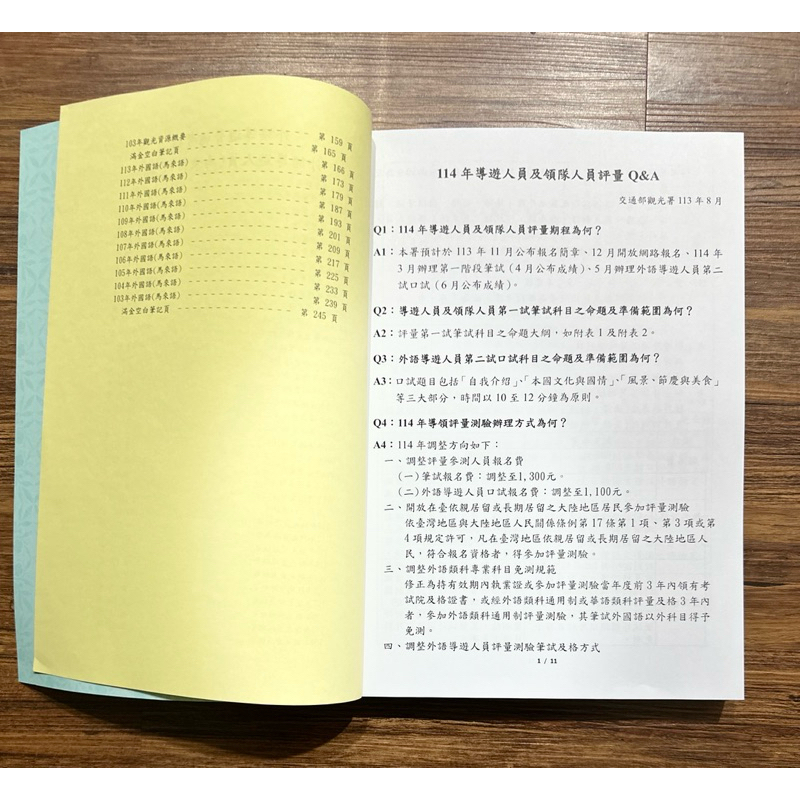 103年觀光資源概要 第 159 頁
滿金空白筆記頁 第 165 頁
113年外國語(馬來語) 第 166 頁
112年外國語(馬來語) 第 173 頁
111年外國語(馬來語) 第 179 頁
110年外國語(馬來語) 第 187 頁
109年外國語(馬來語) 第 193 頁
108年外國語(馬來語) 第 201 頁
107年外國語(馬來語) 第 209 頁
106年外國語(馬來語) 第 217 頁
105年外國語(馬來語) 第 225 頁
104年外國語(馬來語) 第 233 頁
103年外國語(馬來語) 第 239 頁
滿金空白筆記頁 第 245 頁
114 年導遊人員及領隊人員評量 Q&A
交通部觀光署 113 年 8 月
Q1：114 年導遊人員及領隊人員評量期程為何？
A1：本署預計於 113 年 11 月公布報名簡章、12 月開放網路報名、114 年
3 月辦理第一階段筆試(4 月公布成績)、5 月辦理外語導遊人員第二
試口試(6 月公布成績)。
Q2：導遊人員及領隊人員第一試筆試科目之命題及準備範圍為何？
A2：評量第一試筆試科目之命題大綱，如附表 1 及附表 2。
Q3：外語導遊人員第二試口試科目之命題及準備範圍為何？
A3：口試題目包括「自我介紹」、「本國文化與國情」、「風景、節慶與美食」
等三大部分，時間以 10 至 12 分鐘為原則。
Q4：114 年導領評量測驗辦理方式為何？
A4：114 年調整方向如下：
一、調整評量參測人員報名費
(一)筆試報名費：調整至1,300元。
(二)外語導遊人員口試報名費：調整至1,100元。
二、開放在臺依親居留或長期居留之大陸地區居民參加評量測驗
依臺灣地區與大陸地區人民關係條例第 17 條第 1 項、第 3 項或第
4 項規定許可，凡在臺灣地區依親居留或長期居留之大陸地區人
民，符合報名資格者，得參加評量測驗。
三、調整外語類科專業科目免測規範
修正為持有效期內執業證或參加評量測驗當年度前 3 年內領有考
試院及格證書，或經外語類科通用制或華語類科評量及格 3 年內
者，參加外語類科通用制評量測驗，其筆試外國語以外科目得予
免測。
四、調整外語導遊人員評量測驗筆試及格方式
1 / 11